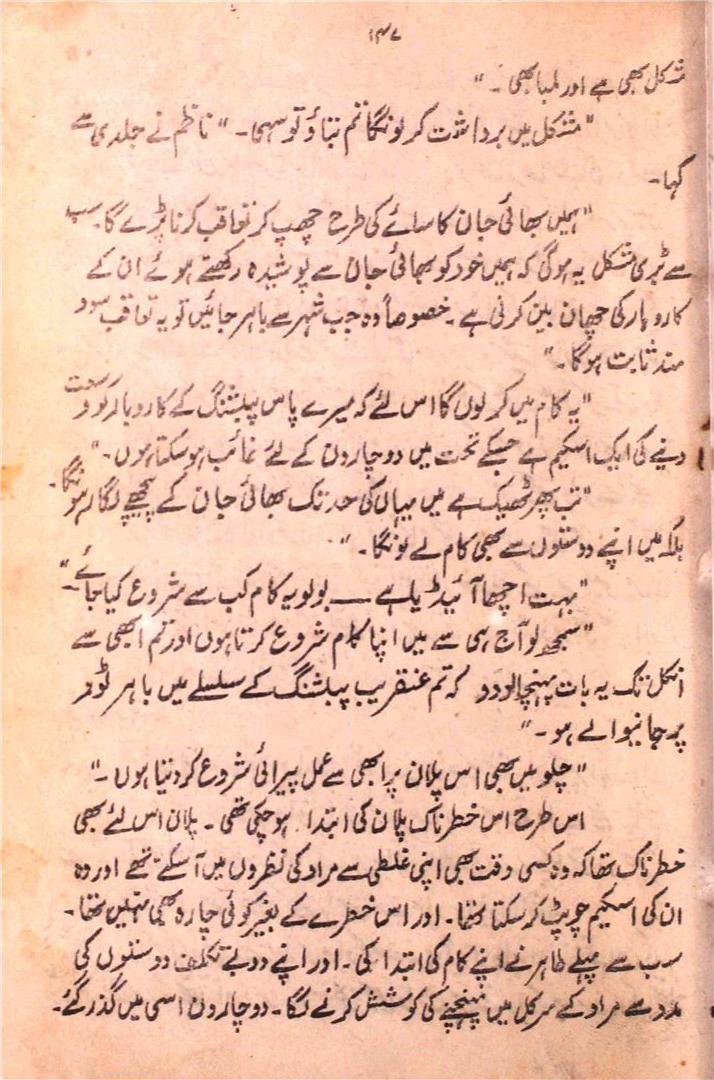 ۱۴۷
مشکل بھی ہے اور لمبا بھی۔"
"مشکل میں برداشت کر لونگا تم بتاؤ تو سہی۔" ناظم نے جلدی سے
کہا۔
"ہمیں بھائی جان کا سائے کی طرح چھپ کر تعاقب کرنا پڑے گا۔ سب
سے بڑی مشکل یہ ہو گی کہ ہمیں خود کو بھائی جان سے پوشیدہ رکھتے ہوئے ان کے
کاروبار کی چھان بین کرنی ہے۔ خصوصاً وہ جب شہر سے باہر جائیں تو یہ تعاقب سود
مند ثابت ہوگا۔"
"یہ کام میں کر لوں گا اس لئے کہ میرے پاس پبلشنگ کے کاروبار کو وسعت
دینے کی ایک اسکیم ہے جسکے تحت میں دو چار دن کے لئے غائب ہو سکتا ہوں۔"
"تب پھر ٹھیک ہے میں یہاں کی حد تک بھائی جان کے پیچھے لگا رہونگا۔
بلکہ میں اپنے دوستوں سے بھی کام لے لونگا۔"
"بہت اچھا آئیڈیا ہے ــــ بولو یہ کام کب سے شروع کیا جائے"
"سمجھ لو آج ہی سے میں اپنا کام شروع کرتا ہوں اور تم ابھی سے
انکل تک یہ بات پہنچا دو کہ تم عنقریب پبلشنگ کے سلسلے میں باہر ٹور
پر جانیوالے ہو۔"
"چلو میں بھی اس پلان پر ابھی سے عمل پیرائی شروع کر دیتا ہوں۔"
اس طرح اس خطرناک پلان کی ابتدا ہو چکی تھی۔ پلان اس لئے بھی
خطرناک تھا کہ وہ کسی وقت بھی اپنی غلطی سے مراد کی نظروں میں آ سکتے تھے اور وہ
ان کی اسکیم چوپٹ کر سکتا تھا۔ اور اس خطرے کے بغیر کوئی چارہ بھی نہیں تھا۔
سب سے پہلے طاہر نے اپنے کام کی ابتدا کی۔ اور اپنے دو بے تکلف دوستوں کی
مدد سے مراد کے سرکل میں پہنچنے کی کوشش کرنے لگا۔ دو چار دن اسی میں گذر گئے۔